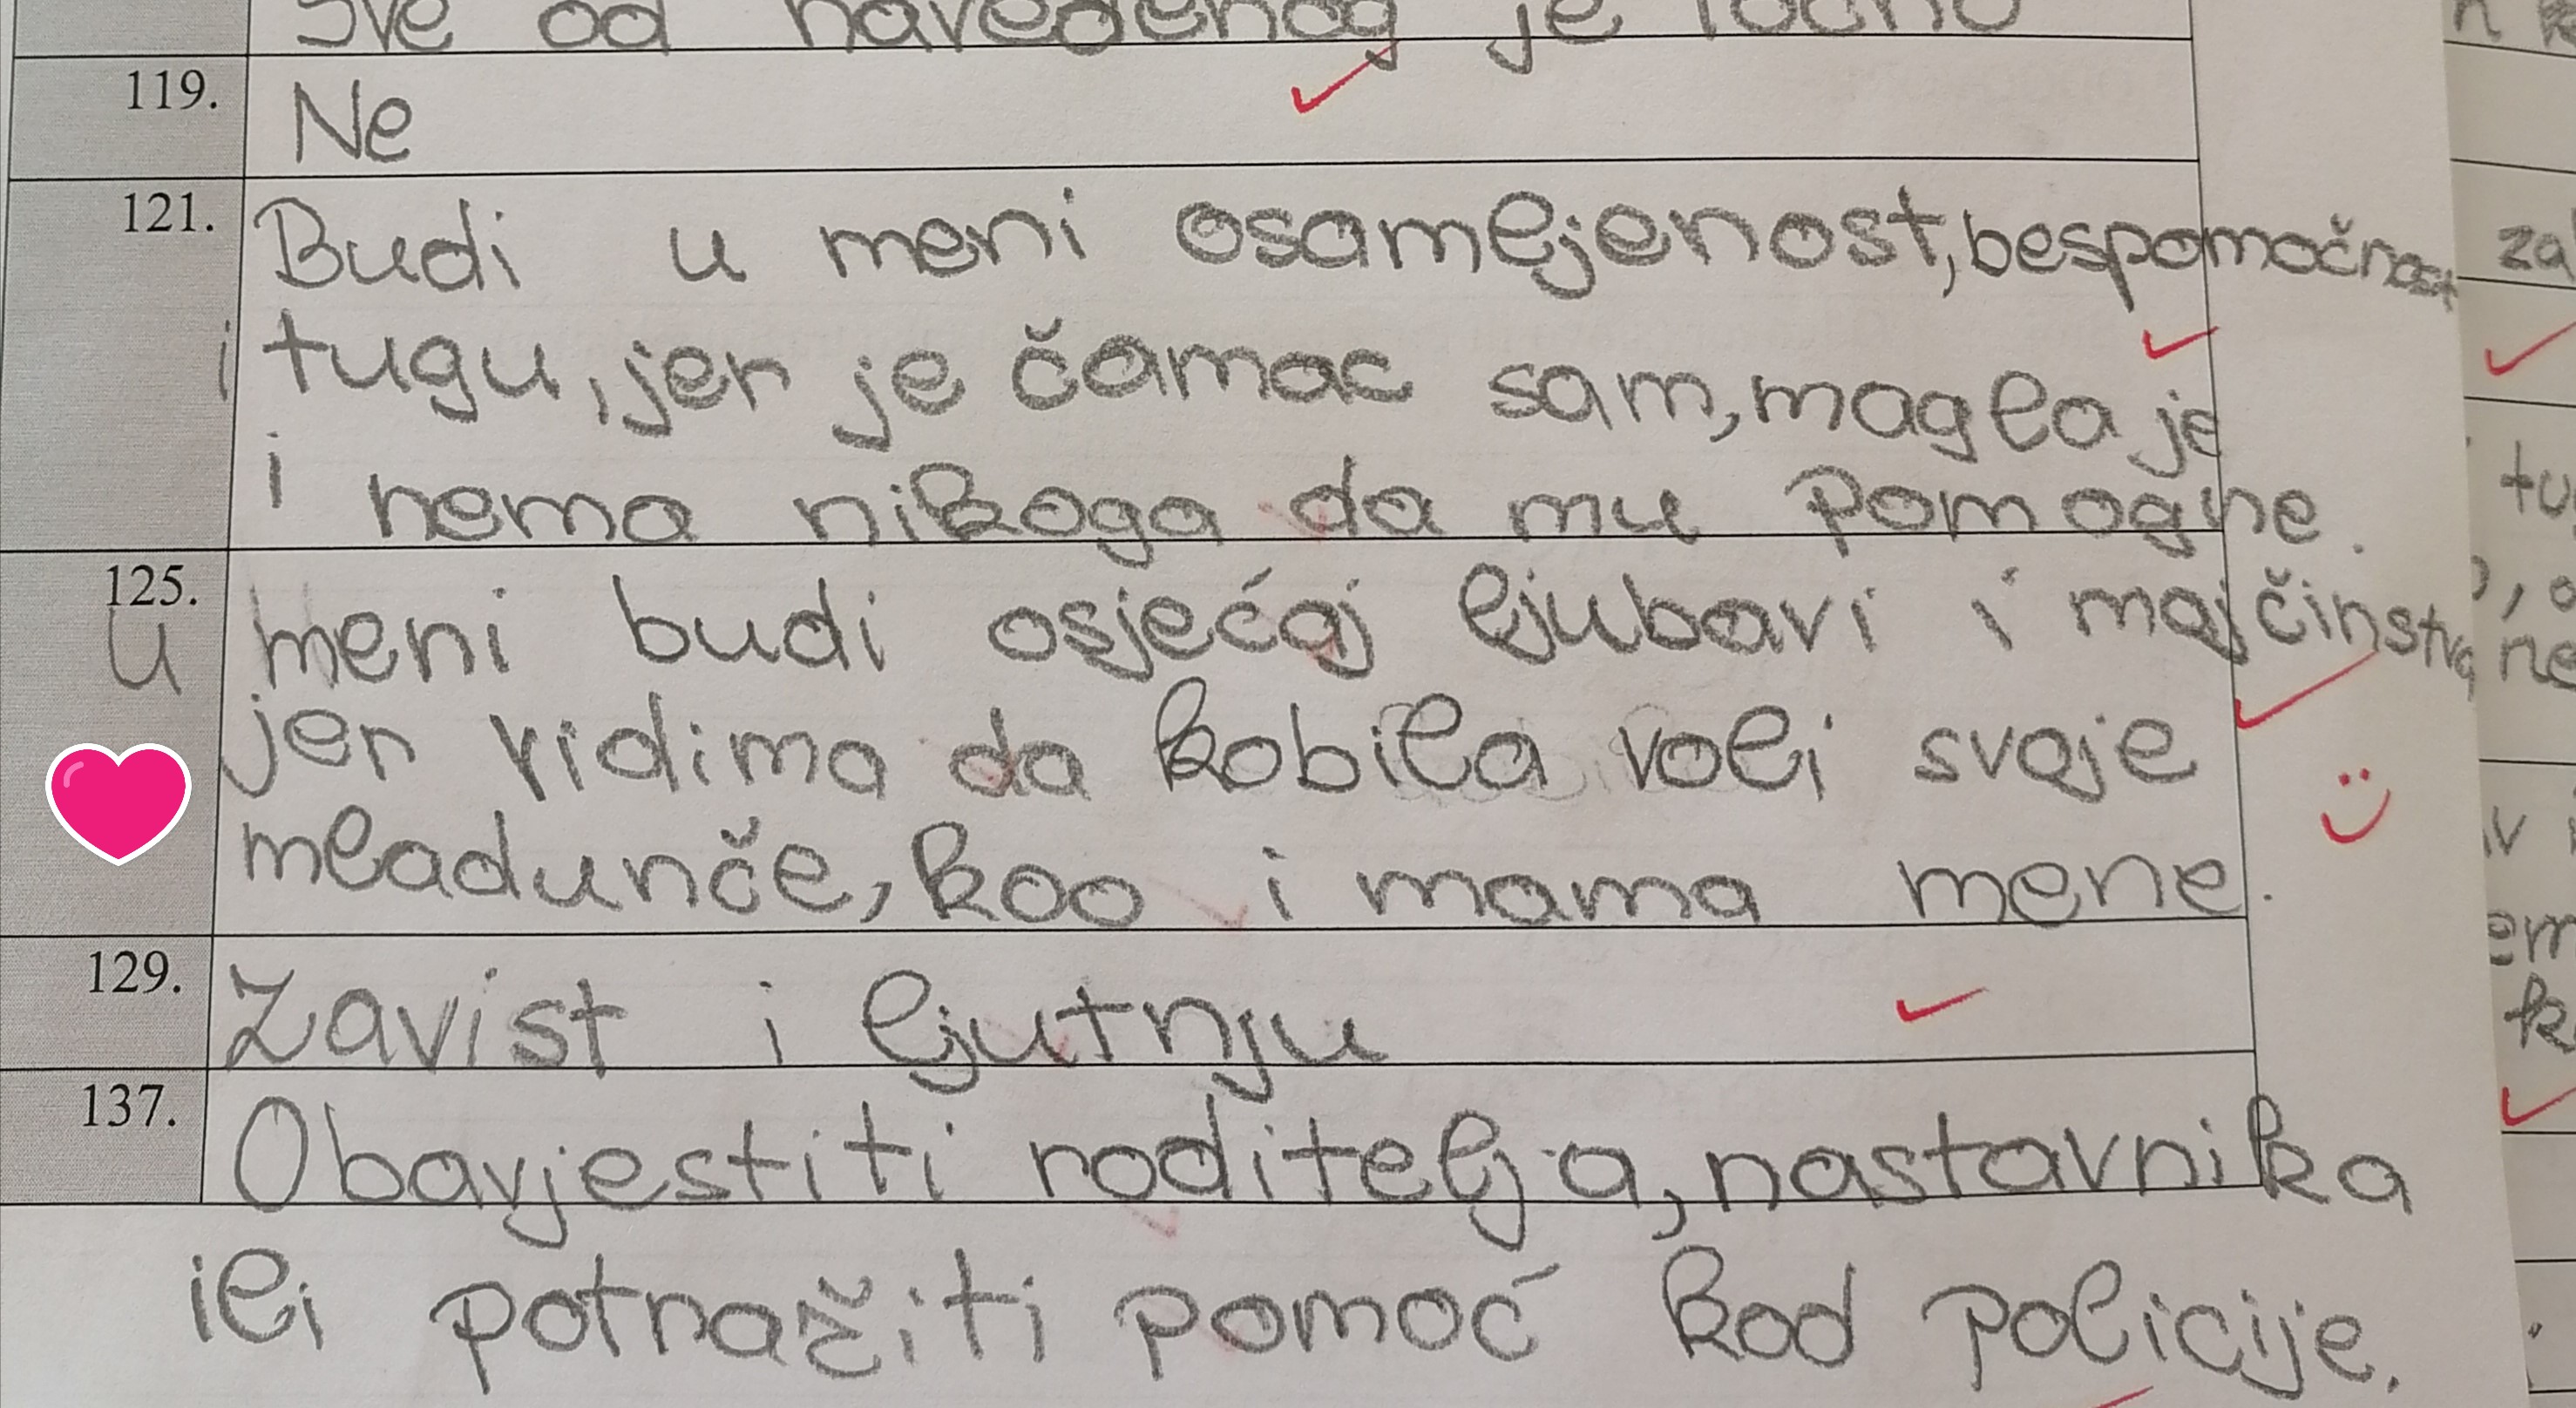 Sve od navedenog je točno
119. Ne
121. Budi u meni osamljenost, bespomočnost
i tugu, jer je čamac sam, magla je
i nema nikoga da mu pomogne.
125. U meni budi osjećaj ljubavi i majčinstva
jer vidima da kobila voli svoje
mladunče, kao i mama mene.
129. Zavist i ljutnju
137. Obavjestiti roditelja, nastavnika
ili potražiti pomoć kod policije.
za
tu
ne
k